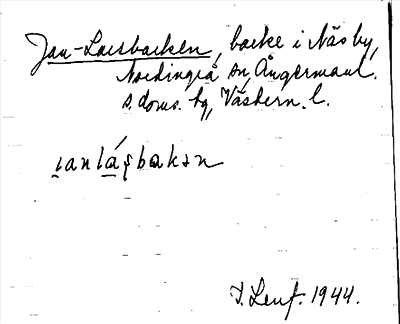 Jan-Larsbacken, backe i Näsby,
Nordingrå sn, Ångermanl.
s. doms. hg, Västern. l.
ı̯anláʂbakən
I. Lenf. 1944.